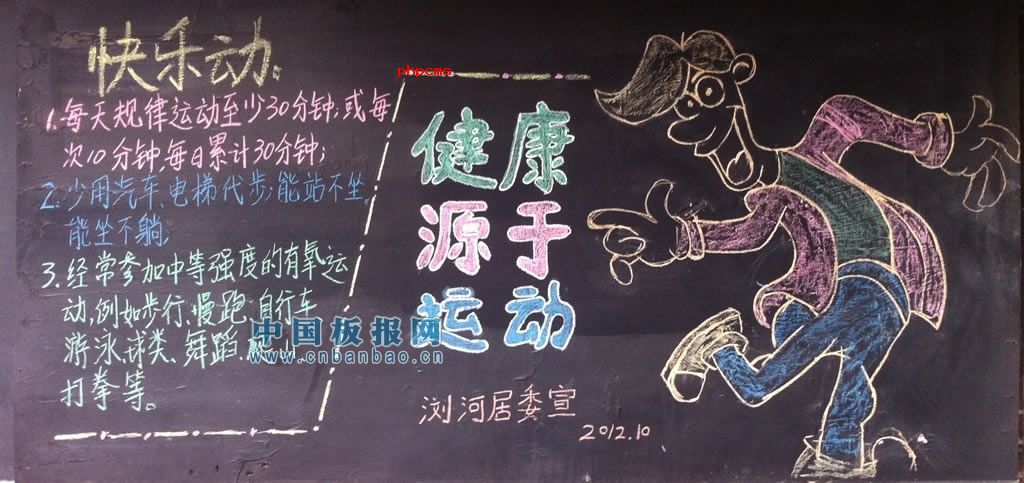 快乐动。
1.每天规律运动至少30分钟;或每
次10分钟,每日累计30分钟;
2.少用汽车、电梯代步;能站不坐,
能坐不躺,
3.经常参加中等强度的有氧运
动,例如步行、慢跑、自行车
游泳、球类、舞蹈、
打拳等。
phpcms
健康
源于
运动
浏河居委宣
2012.10
中国板报网
www.cnbanbao.cn